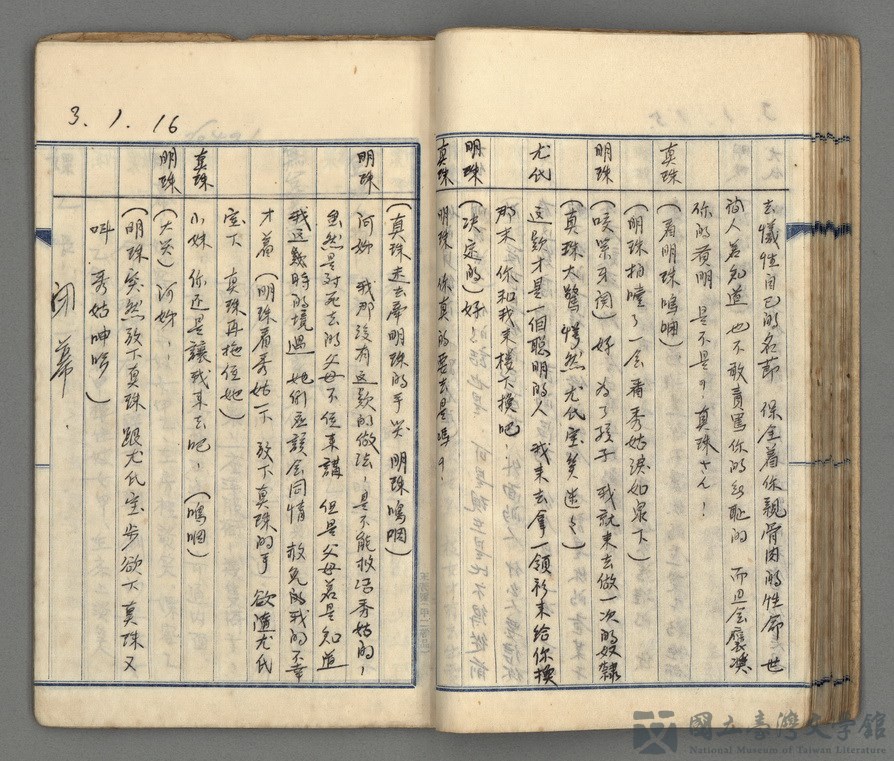 去犧性自己的名節 保全着你親骨肉的性命 世
詢人若知道 也不敢責罵你的無恥的 而且会襃獎
你的賢明 是不是?真珠さん!
真珠 (看明珠嗚咽)
(明珠拍噇了一会 看秀姑淚如泉下)
明珠 (咬緊牙関) 好 為了孩子 我就來去做一次的奴隸
(真珠大驚愕然 尤氏宝笑迷々)
尤氏 這款才是一個聰明的人 我來去拿一領衫來給你換
那末 你和我來樓下換吧
明珠 (決定的) 好
真珠 明珠 你真的要去是嗎?
3. 1. 16
(真珠走去牽明珠的手哭 明珠嗚咽)
明珠 阿姊 我那沒有這款的做法,是不能救活秀姑的,
雖然是對死去的父母不住東講 但是父母若是知道
我这幾時的境遇 她俩應該会同情 赦免的我的不幸
才着 (明珠看秀姑一下 放下真珠的手 欲隨尤氏
宝下 真珠再拖住她)
真珠 小妹 你还是讓我來去吧, (嗚咽)
明珠 (大哭) 阿姊,!
(明珠突然放下真珠 跟尤氏宝步欲下 真珠又
叫 秀姑呻吟)
閉幕.
國立臺灣文學館
National Museum of Taiwan Literature